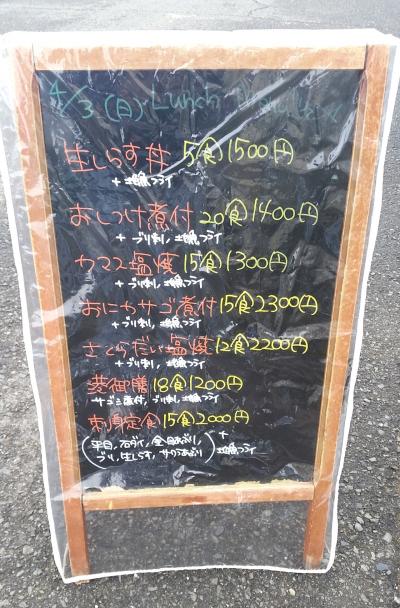 4/3 (日) Lunch
生しらす丼 5食 1500円
+ 地魚フライ
おしつけ煮付 20食 1400円
+ ブリ刺, 地魚フライ
カマス塩焼 15食 1300円
+ ブリ刺, 地魚フライ
おにカサゴ煮付 15食 2300円
+ ブリ刺, 地魚フライ
さくらだい塩焼 12食 2200円
+ ブリ刺, 地魚フライ
御膳 18食 1200円
サゴシ煮付, ブリ刺, 地魚フライ
刺身定食 15食 2000円
(平目, 石ダイ, 金目あぶり, ブリ, 生しらす, サワラあぶり) + 地魚フライ